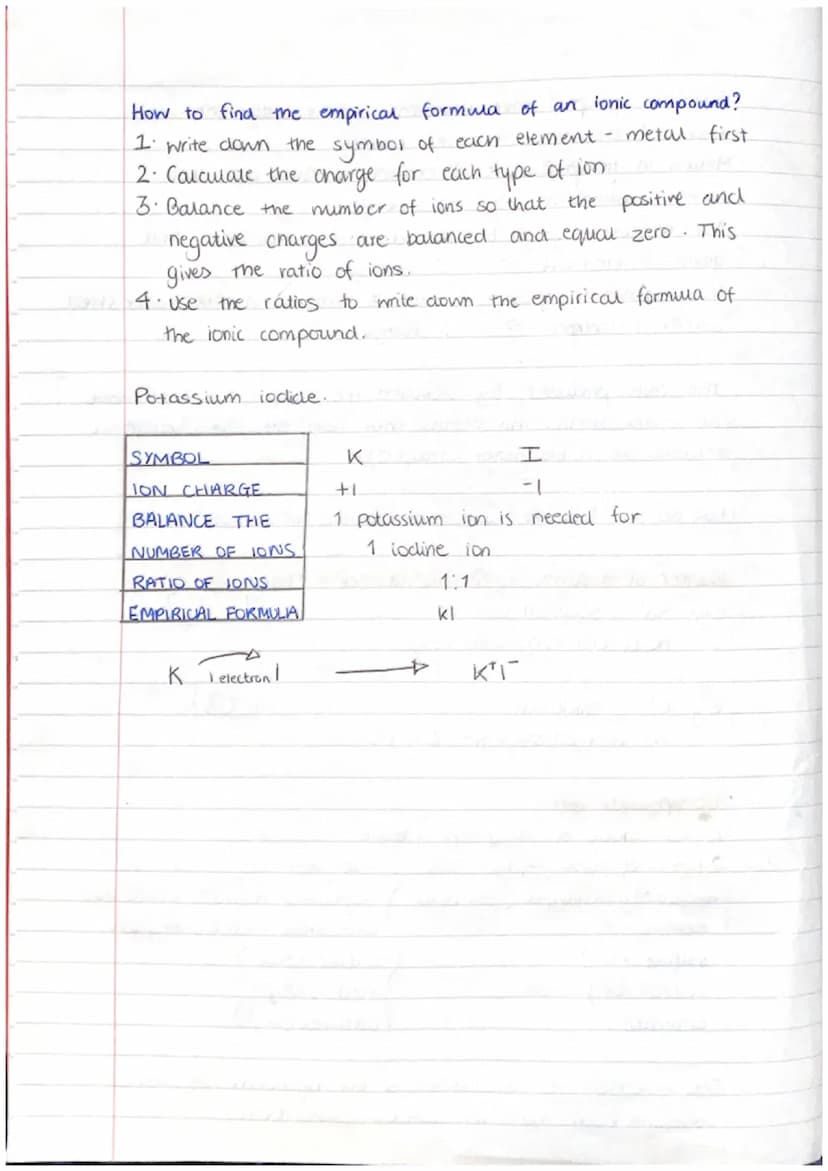 How to find the empirical formula of an ionic compound?
1. Write down the symbol of each element - metal first
2. Calculate the charge for each type of ion
3. Balance the number of ions so that the positive and
negative charges are balanced and equal zero. This
gives the ratio of ions.
4. Use the ratios to write down the empirical formula of
the ionic compound.
Potassium iodide.
SYMBOL K I
ION CHARGE +1 -1
BALANCE THE 1 potassium ion is needed for
NUMBER OF IONS 1 iodine ion
RATIO OF IONS 1:1
EMPIRICAL FORMULA KI
K 1 electron I → K⁺I⁻